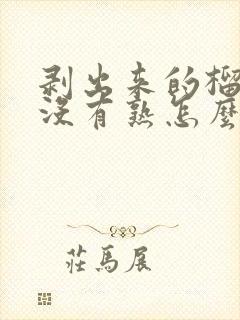 剥出来的榴
没有熟怎麼
莊馬展